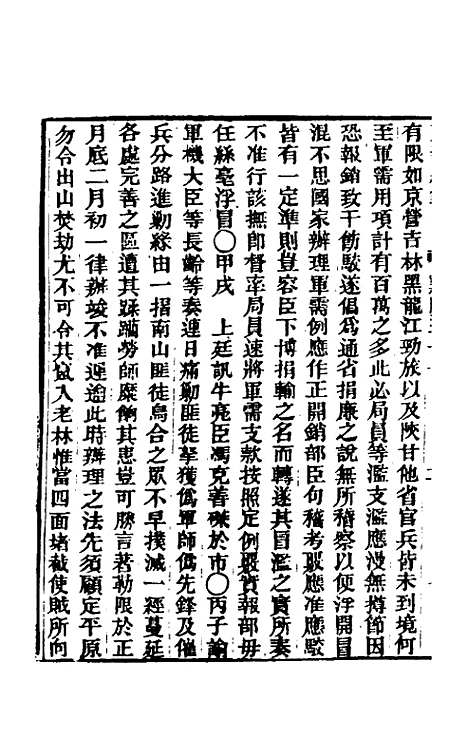 有限如京營吉林黑龍江勁旅以及陝甘他省官兵皆未到境何
至軍需用項計有百萬之多此必局員等濫支濫應漫無撙節因
恐報銷致干飭駁遂倡爲通省捐廉之說無所稽察以便浮開冒
混不思國家辦理軍需例應作正開銷部臣句稽考覈應准應駁
皆有一定準則豈容臣下博捐輸之名而轉遂其冒濫之實所奏
不准行該撫卽督率局員速將軍需支款按照定例覈實報部毋
任絲毫浮冒〇甲戌　上廷訊牛亮臣馮克善磔於市〇丙子諭
軍機大臣等長齡等奏連日痛勦匪徒拏獲僞軍師僞先鋒及催
兵分路進勦緣由一摺南山匪徒烏合之眾不早撲滅一經蔓延
各處完善之區遭其蹂躪勞師糜餉其患豈可勝言著勒限於正
月底二月初一律辦竣不准遲逾此時辦理之法先須顧定平原
勿令出山焚劫尤不可令其竄入老林惟當四面堵截使賊所向